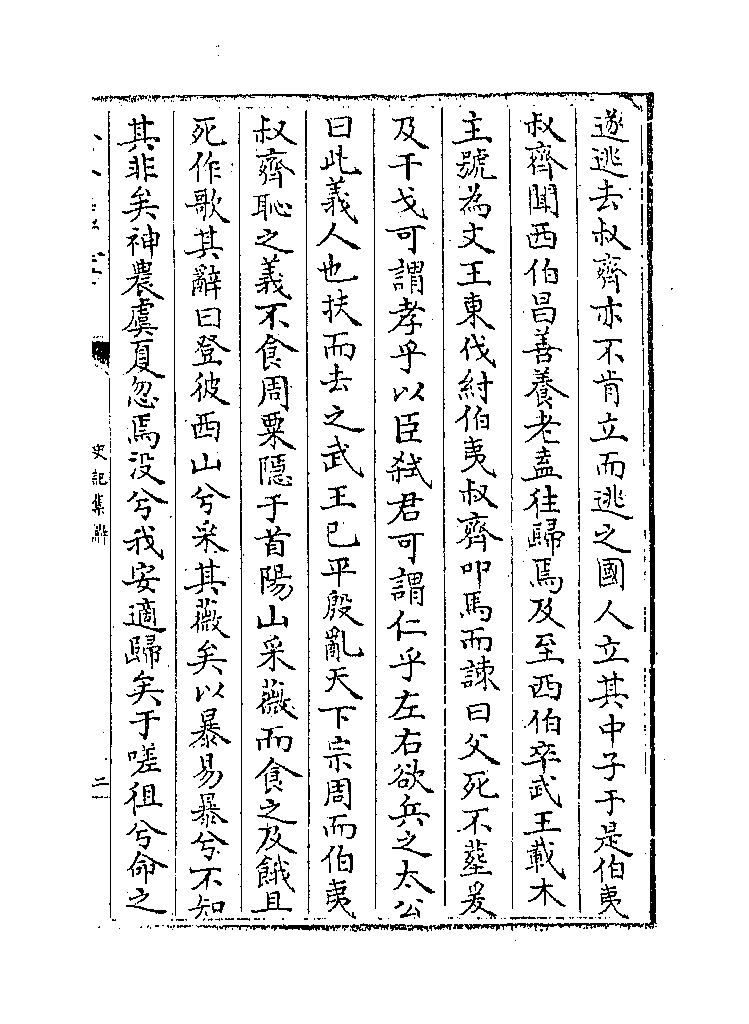 遂逃去叔齊亦不肯立而逃之國人立其中子于是伯夷
叔齊聞西伯昌善養老盍往歸焉及至西伯卒武王載木
主號為文王東伐紂伯夷叔齊叩馬而諫曰父死不塟爰
及干戈可謂孝乎以臣弑君可謂仁乎左右欲兵之太公
曰此義人也扶而去之武王已平殷亂天下宗周而伯夷
叔齊恥之義不食周粟隱于首陽山采薇而食之及餓且
死作歌其辭曰登彼西山兮采其薇矣以暴易暴兮不知
其非矣神農虞夏忽焉没兮我安適歸矣于嗟徂兮命之
史記集解
二